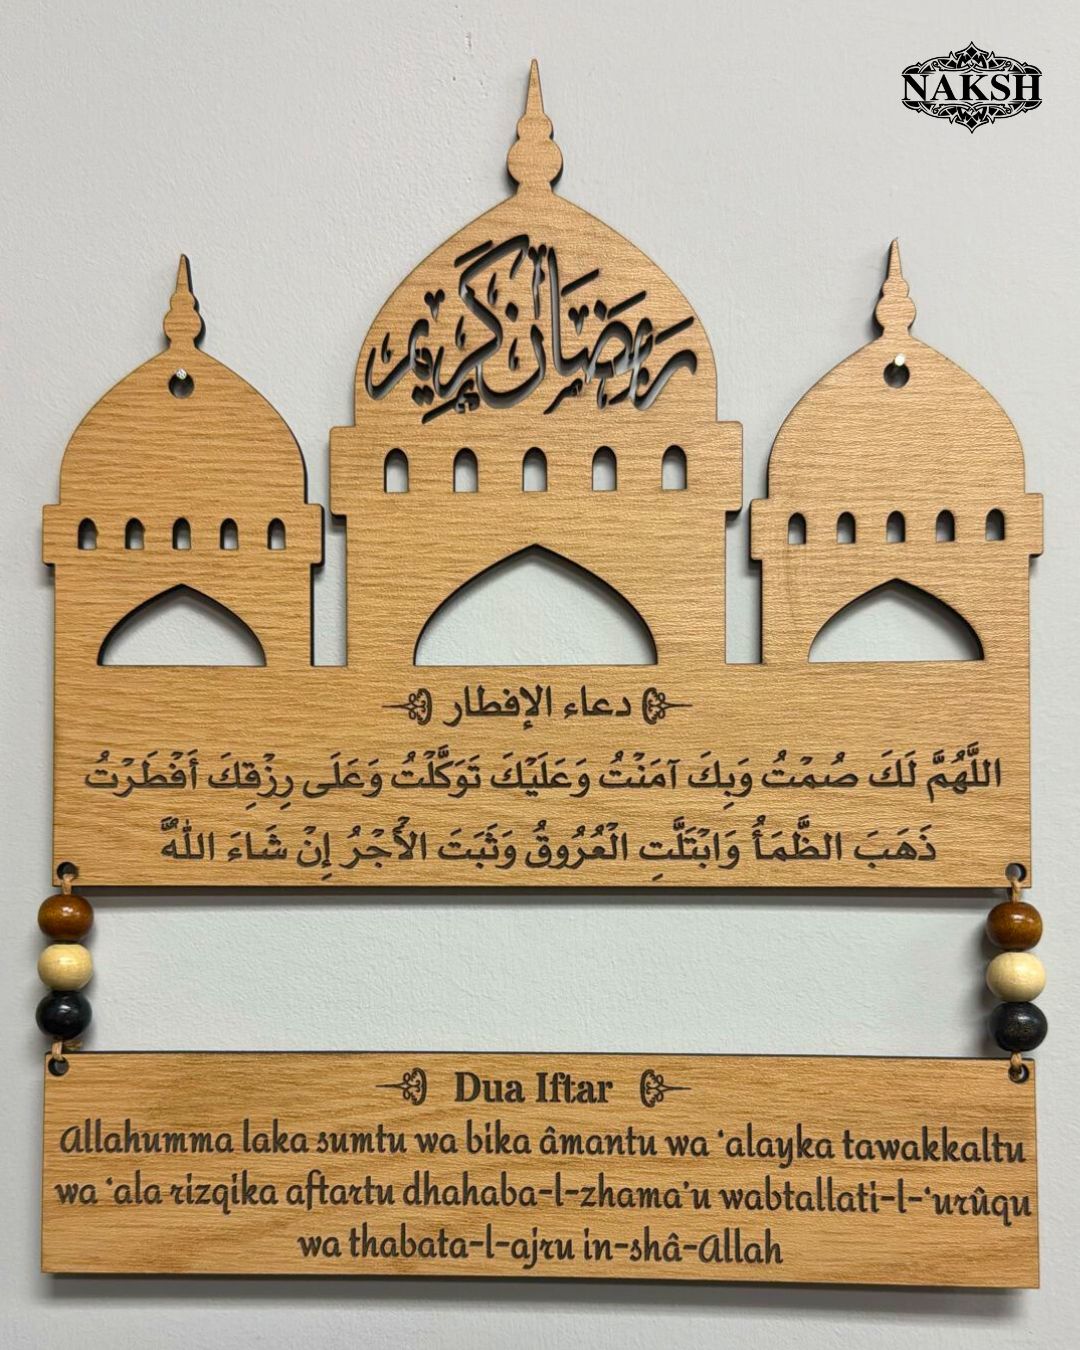 NAKSH
رمضان كريم
دعاء الإفطار
اللَّهُمَّ لَكَ صُمْتُ وَبِكَ آمَنْتُ وَعَلَيْكَ تَوَكَّلْتُ وَعَلَى رِزْقِكَ أَفْطَرْتُ
ذَهَبَ الظَّمَأُ وَابْتَلَّتِ الْعُرُوقُ وَثَبَتَ الْأَجْرُ إِنْ شَاءَ اللَّهُ
Dua Iftar
Allahumma laka sumtu wa bika âmantu wa ‘alayka tawakkaltu
wa ‘ala rizqika aftartu dhahaba-l-zhama’u wabtallati-l-‘urûqu
wa thabata-l-ajru in-shâ-Allah